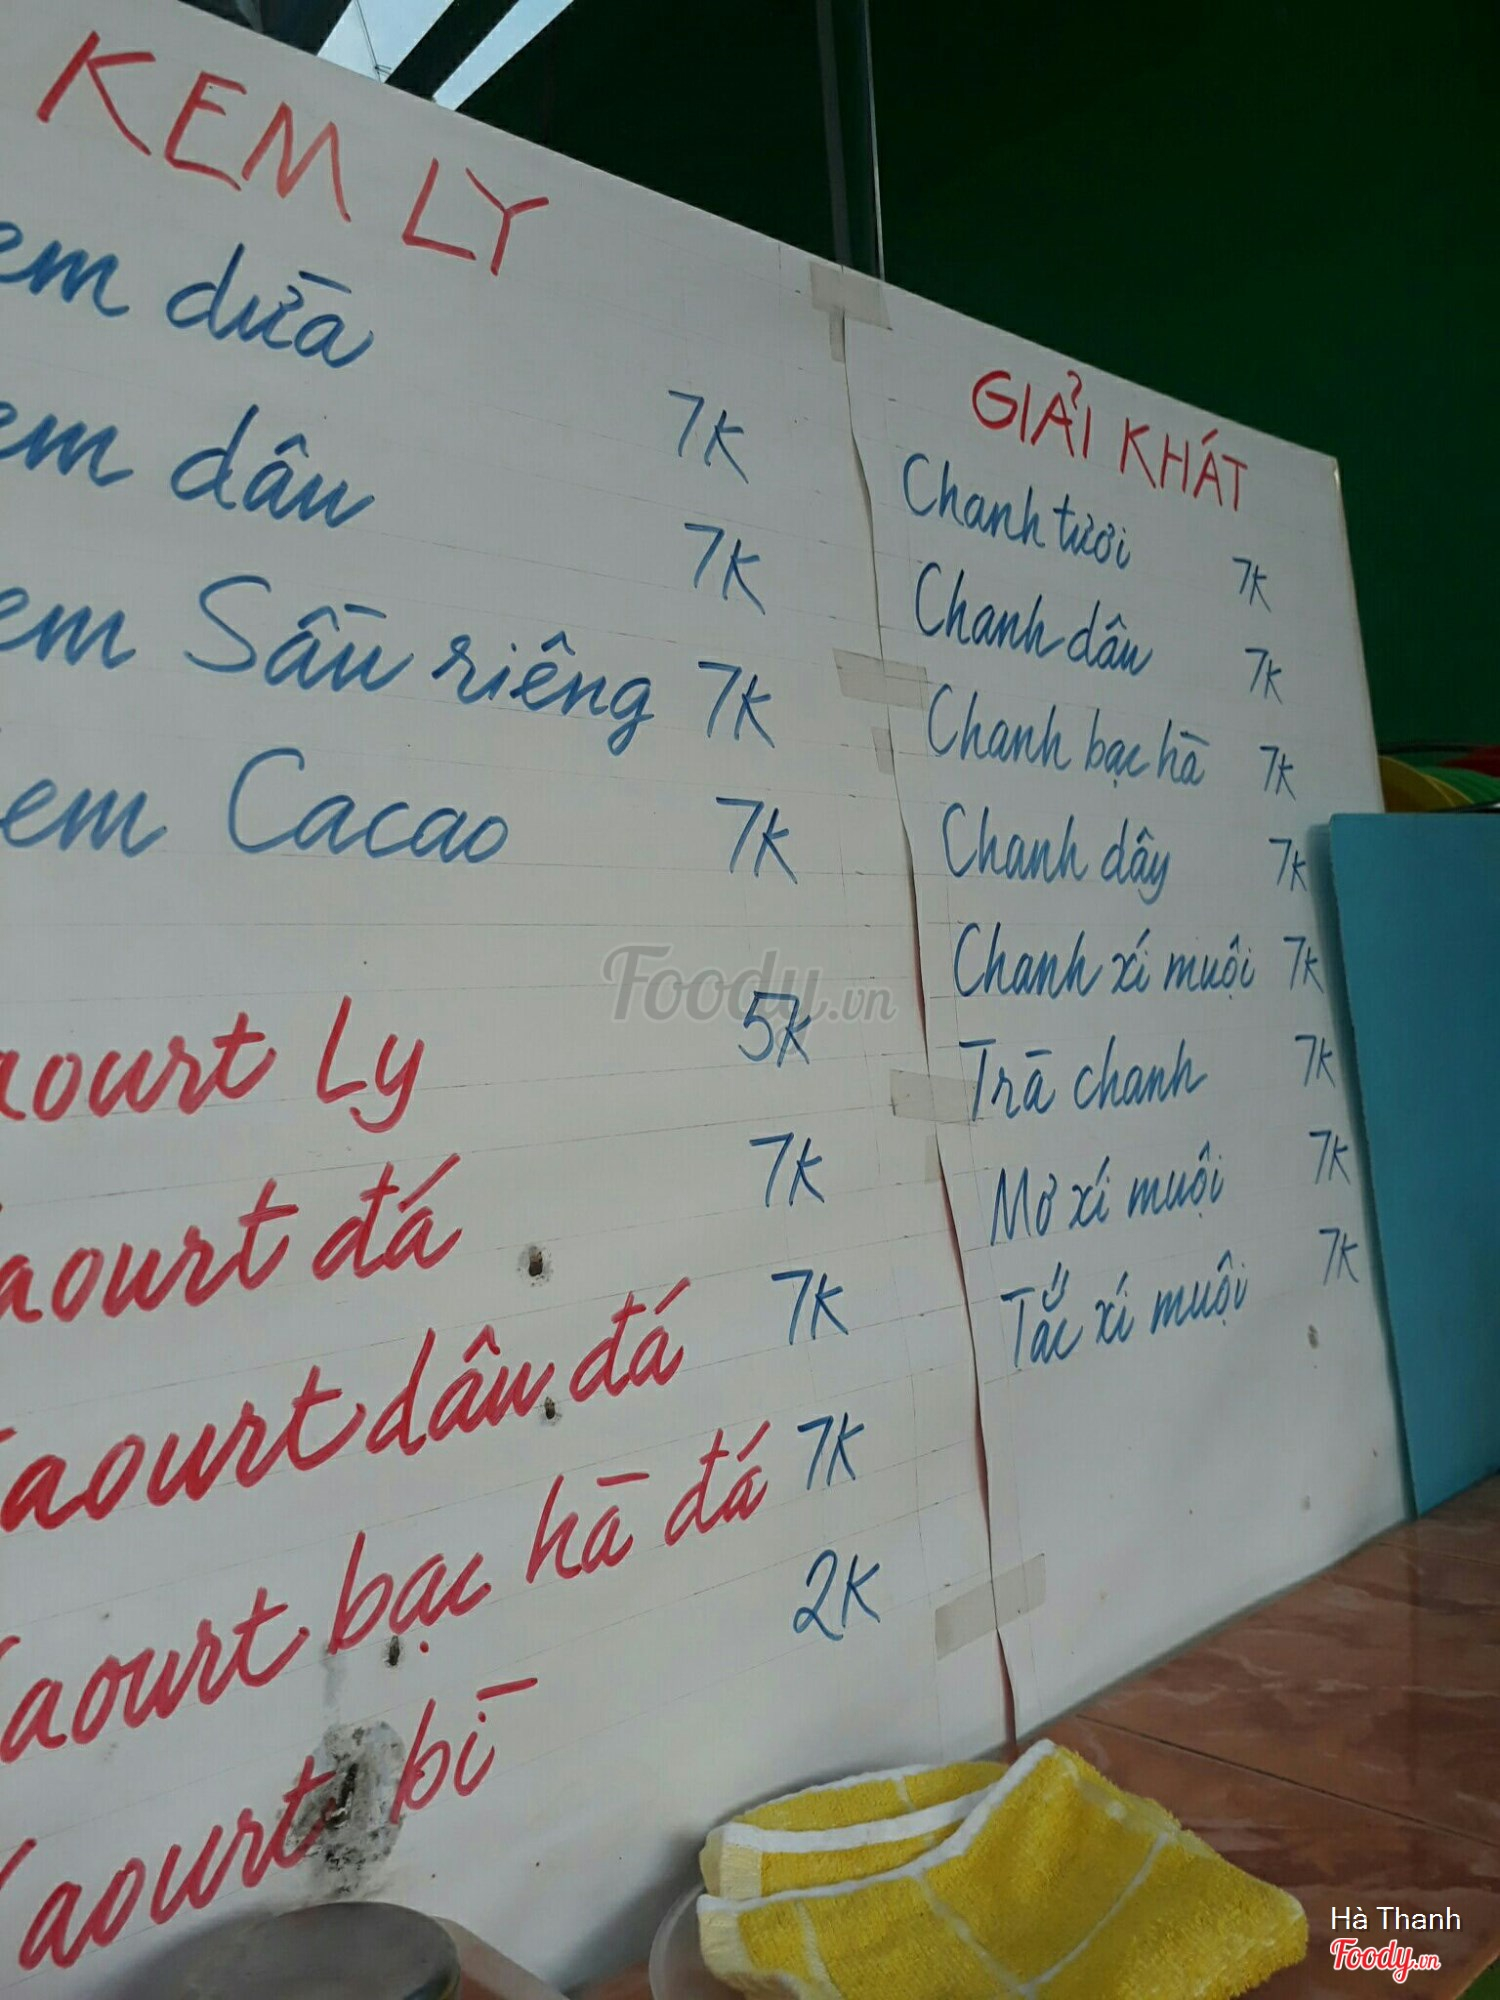 KEM LY
em dừa 7K
em dâu 7K
em Sầu riêng 7K
em Cacao 7K
aourt Ly 5K
aourt đá 7K
Yaourt dâu đá 7K
Yaourt bạc hà đá 7K
Yaourt bì 2K
GIẢI KHÁT
Chanh tươi 7K
Chanh dâu 7K
Chanh bạc hà 7K
Chanh dây 7K
Chanh xí muội 7K
Trà chanh 7K
Mơ xí muội 7K
Tắc xí muội 7K
Foody.vn
Hà Thanh
Foody.vn